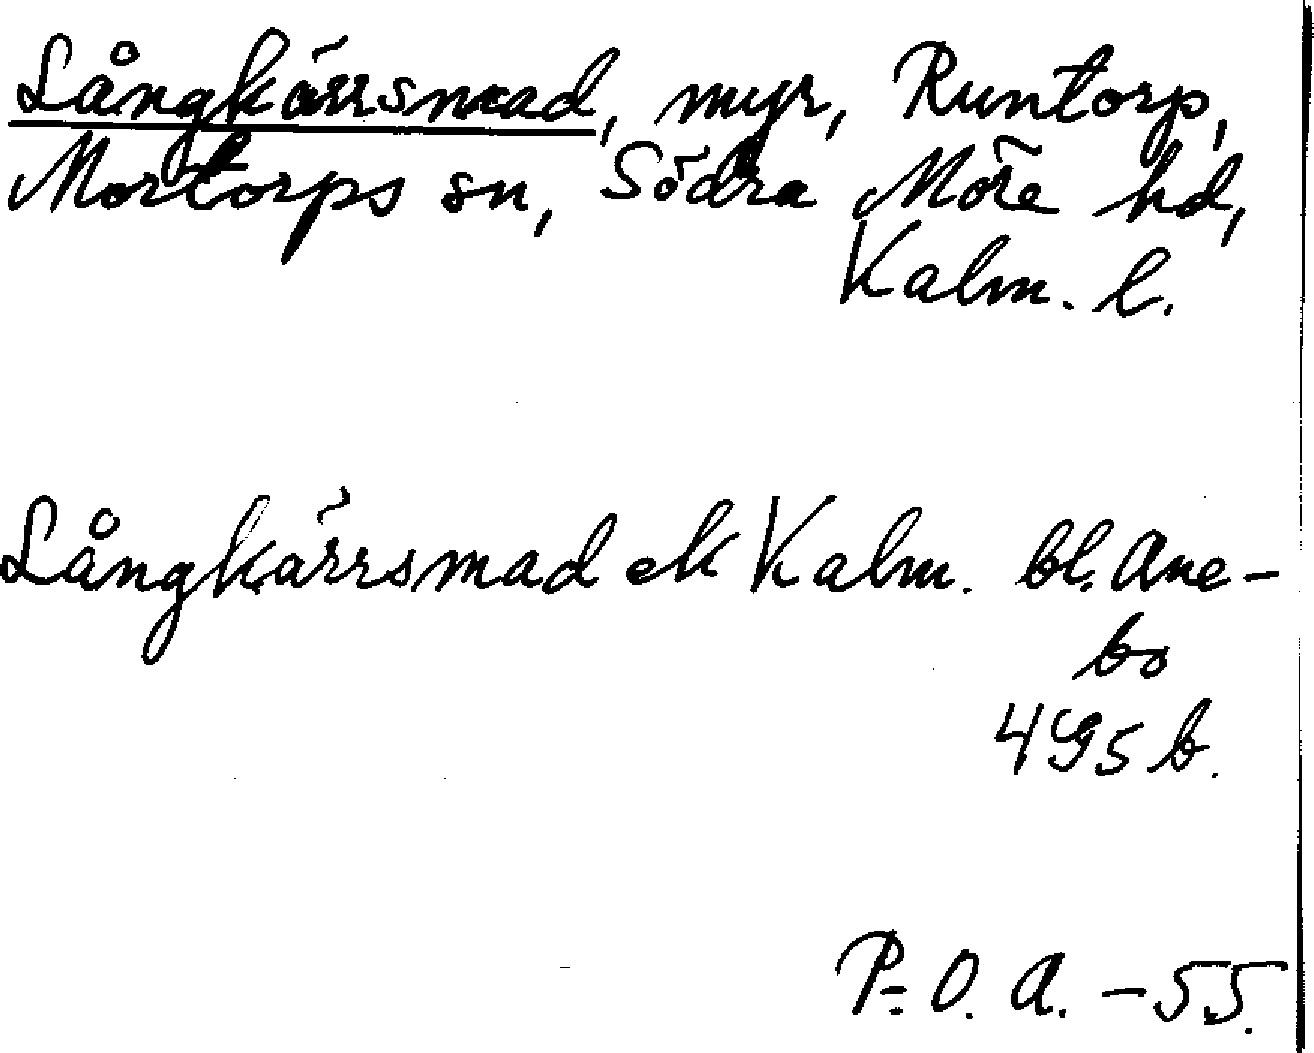 Långkärrsmad, myr, Runtorp,
Mortorps sn, Södra Möre hd,
Kalm. l.
Långkärrsmad ek Kalm. bl. Ane-
bo
495 b.
P-O. A. -55.